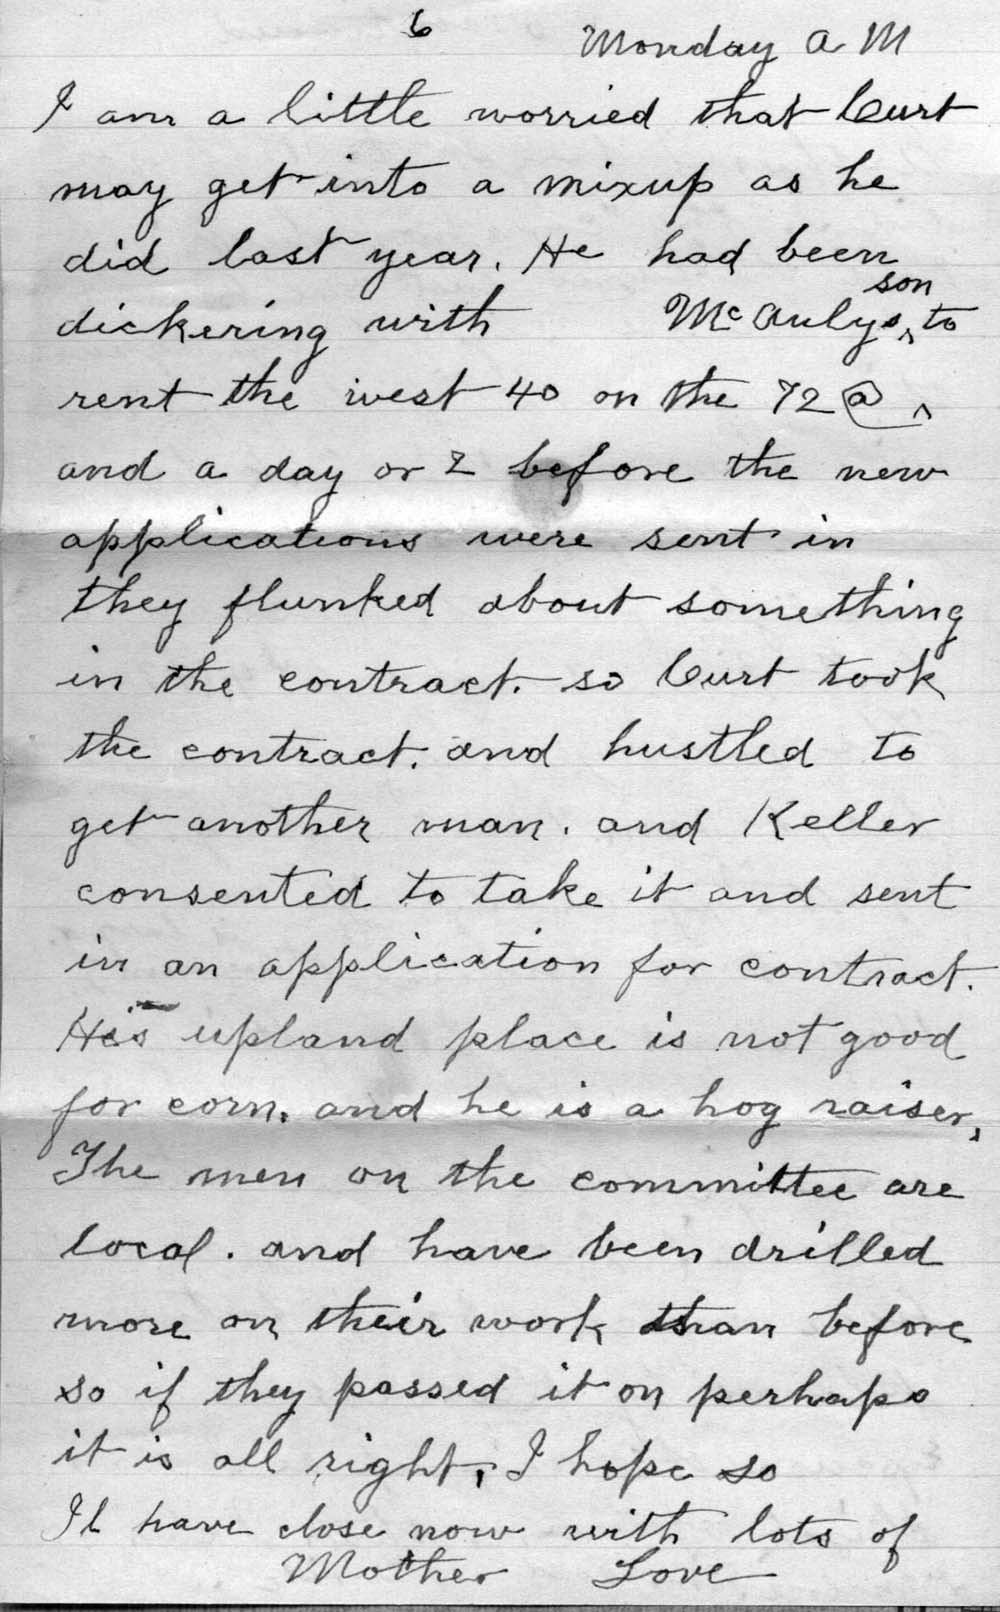 6 Monday A M
I am a little worried that Curt
may get into a mixup as he
did last year. He had been
son
dickering with McAulys ^ to
rent the west 40 on the 72 @ ^
and a day or 2 before the new
applications were sent in
they flunked about something
in the contract. so Curt took
the contract. and hustled to
get another man. and Keller
consented to take it and sent
in an application for contract.
His upland place is not good
for corn. and he is a hog raiser,
The men on the committee are
local. and have been drilled
more on their work than before
so if they passed it on perhaps
it is all right, I hope so
Il have close now with lots of
Mother Love